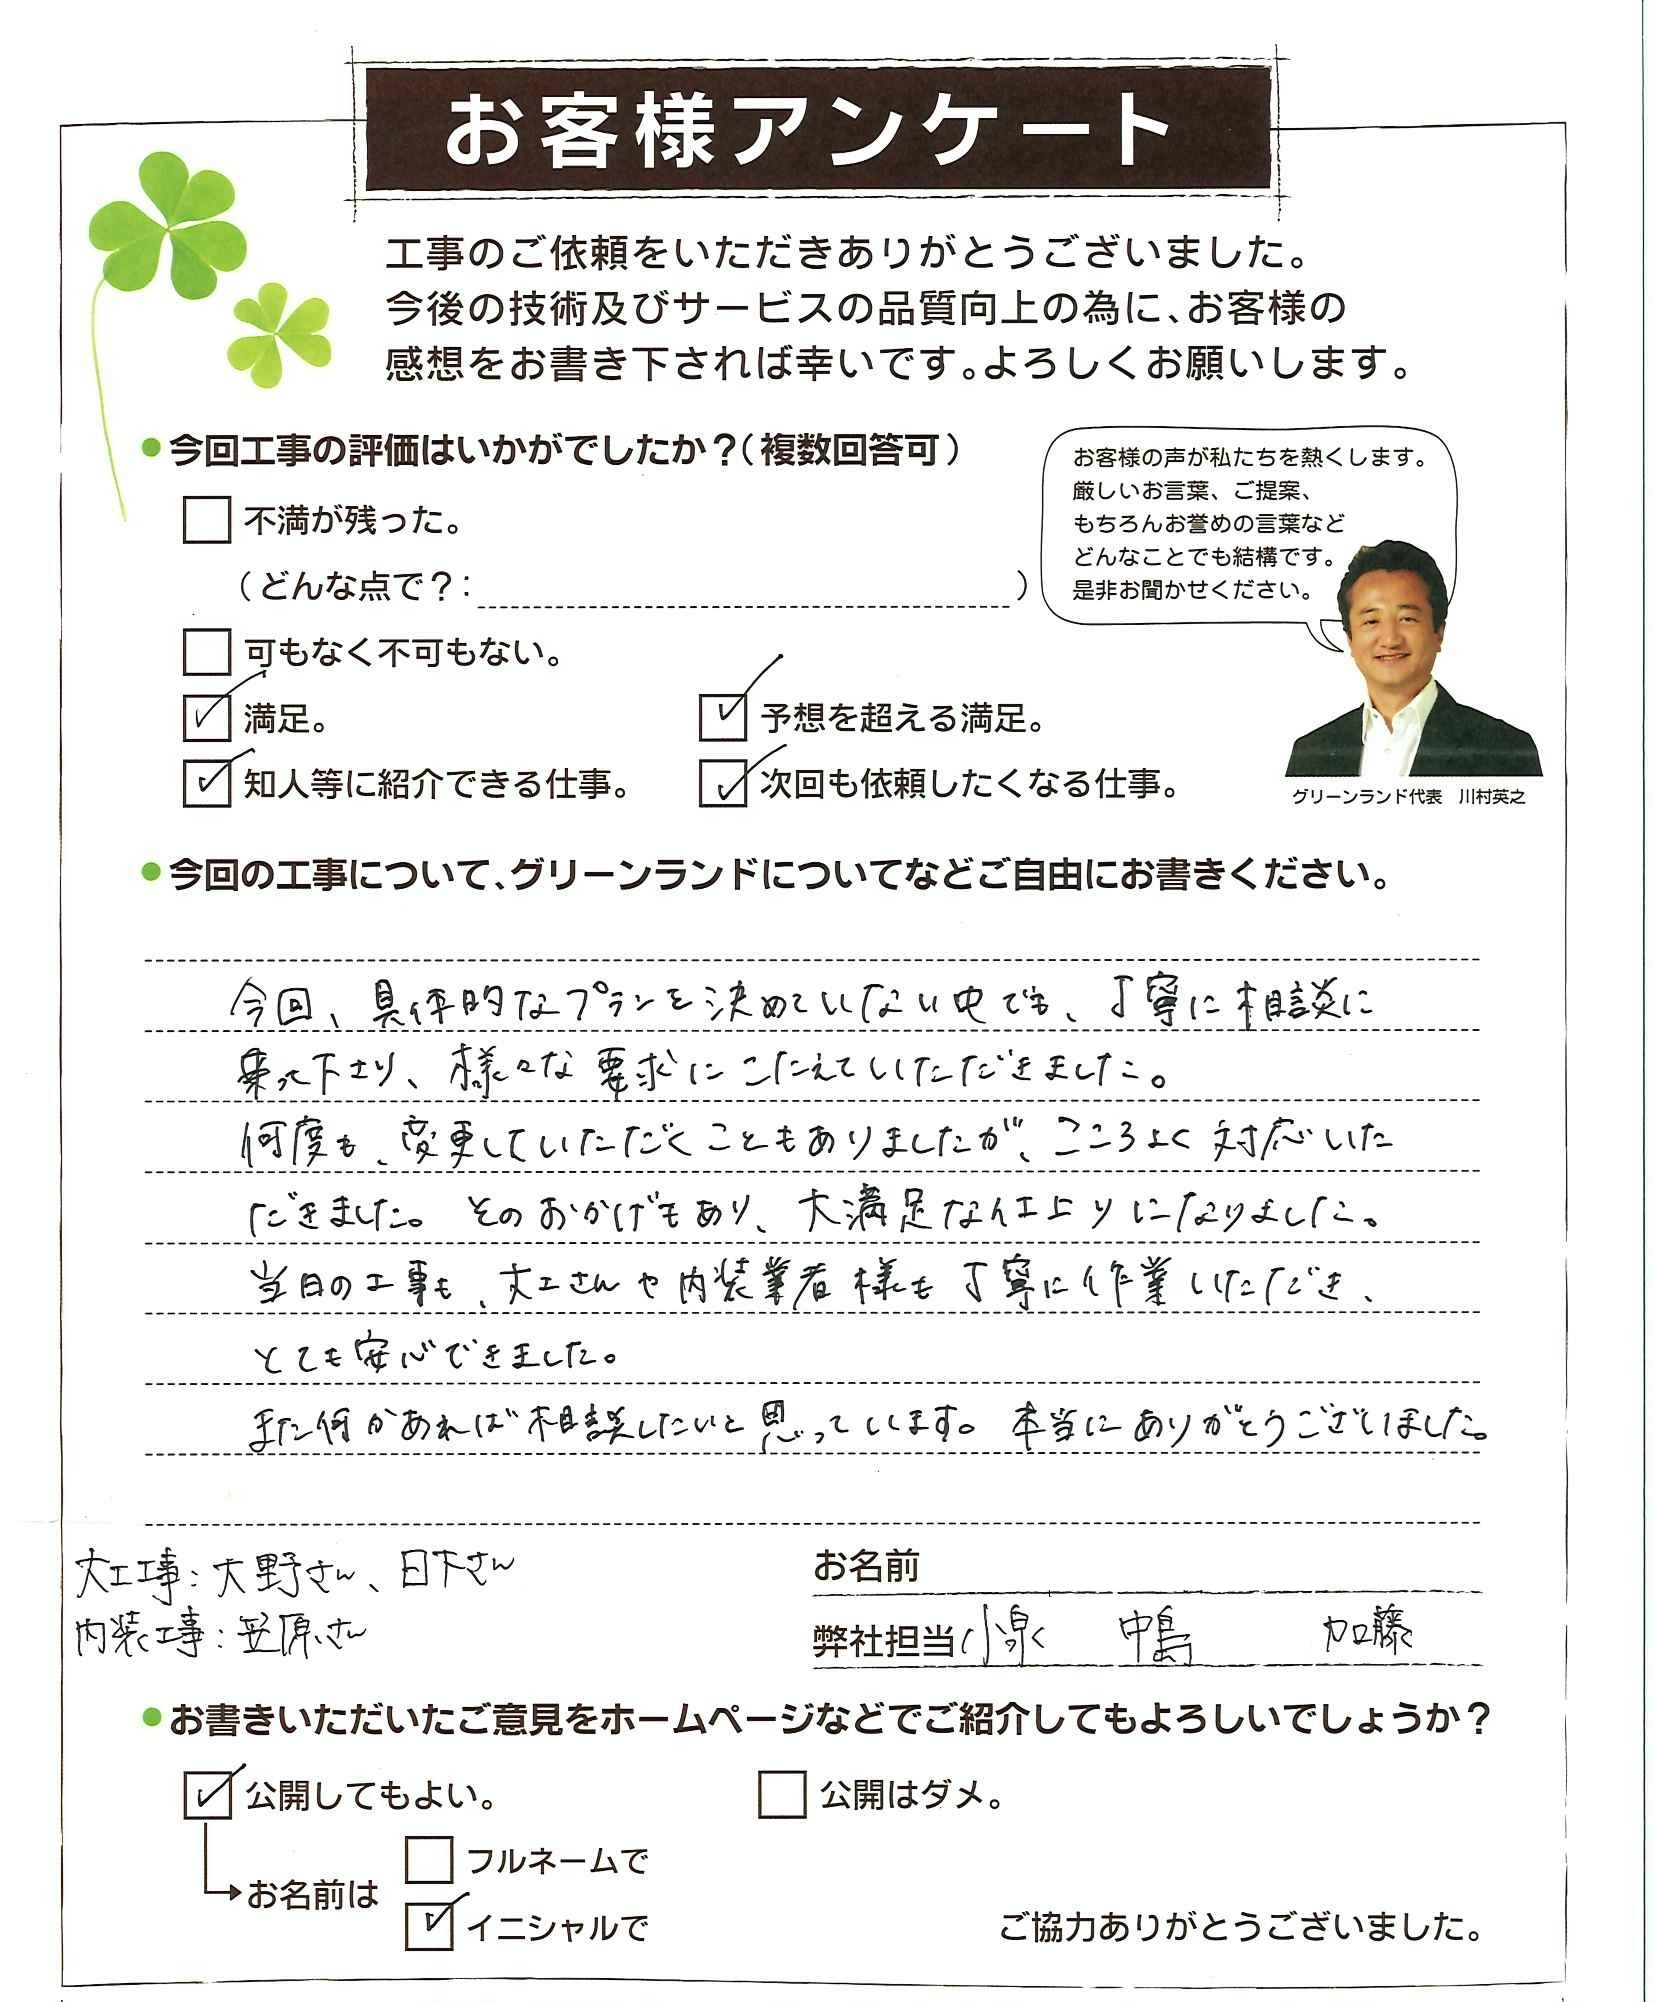 お客様アンケート
工事のご依頼をいただきありがとうございました。
今後の技術及びサービスの品質向上の為に、お客様の
感想をお書き下されば幸いです。よろしくお願いします。
●今回工事の評価はいかがでしたか?(複数回答可)
不満が残った。
(どんな点で?: )
可もなく不可もない。
満足。
予想を超える満足。
知人等に紹介できる仕事。
次回も依頼したくなる仕事。
お客様の声が私たちを熱くします。
厳しいお言葉、ご提案、
もちろんお誉めの言葉など
どんなことでも結構です。
是非お聞かせください。
グリーンランド代表 川村英之
●今回の工事について、グリーンランドについてなどご自由にお書きください。
今回、具体的なプランを決めていない中でも、丁寧に相談に
乗って下さり、様々な要求にこたえていただきました。
何度も、変更していただくこともありましたが、こころよく対応いた
だきました。そのおかげもあり、大満足な仕上りになりました。
当日の工事も、大工さんや内装業者様も丁寧に作業いただき、
とても安心できました。
また何かあれば相談したいと思っています。本当にありがとうございました。
大工工事:大野さん、日下さん
内装工事:笠原さん
お名前
弊社担当 小泉 中島 加藤
●お書きいただいたご意見をホームページなどでご紹介してもよろしいでしょうか?
公開してもよい。
公開はダメ。
お名前は
フルネームで
イニシャルで
ご協力ありがとうございました。